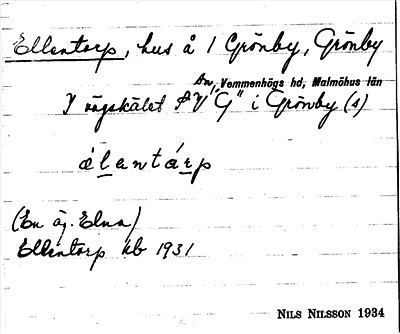 Ellentorp, hus å 1 Grönby, Grönby
sn, Vemmenhögs hd, Malmöhus län
I vägskälet "G" i Grönby (s)
élantárp
(En äg. Elna)
Ellentorp kb 1931
NILS NILSSON 1934